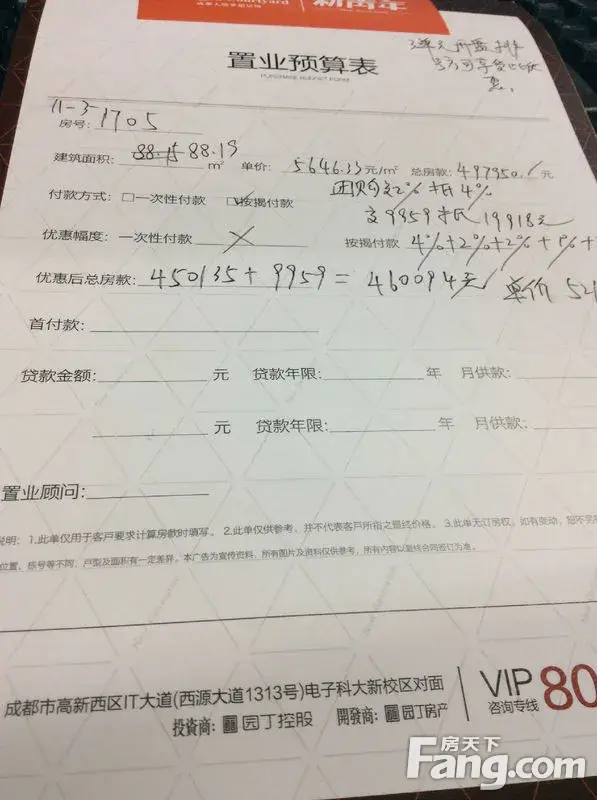 ourtyard
新青年
3单元所要排
号方可享受此优
惠,
置业预算表
11-3-
房号: 1705
建筑面积: 88.15 88.19 m² 单价: 5646.33 元/m² 总房款: 497950.1 元
团购交2% 抵4%
付款方式: □一次性付款 ☑按揭付款
交9959抵19918元
优惠幅度: 一次性付款 × 按揭付款 4%+2%+2%+1%+
优惠后总房款: 450135+9959=460094元 单价 52
首付款:
贷款金额: 元 贷款年限: 年 月供款:
元 贷款年限: 年 月供款:
置业顾问:
说明: 1.此单仅用于客戸要求计算房款时填写。 2.此单仅供参考, 并不代表客戸所宿之最终价格。 3.此单无订房权。如有变动, 恕不
位置、栋号等不同, 户型及面积有一定差异。本广告为宣传资料, 所有图片及资料仅供参考, 所有内容以最终合同签订为准。
成都市高新西区IT大道(西源大道1313号)电子科大新校区对面
投資商: 园丁控股 開發商: 园丁房产
VIP 80
咨询专线
房天下
Fang.com